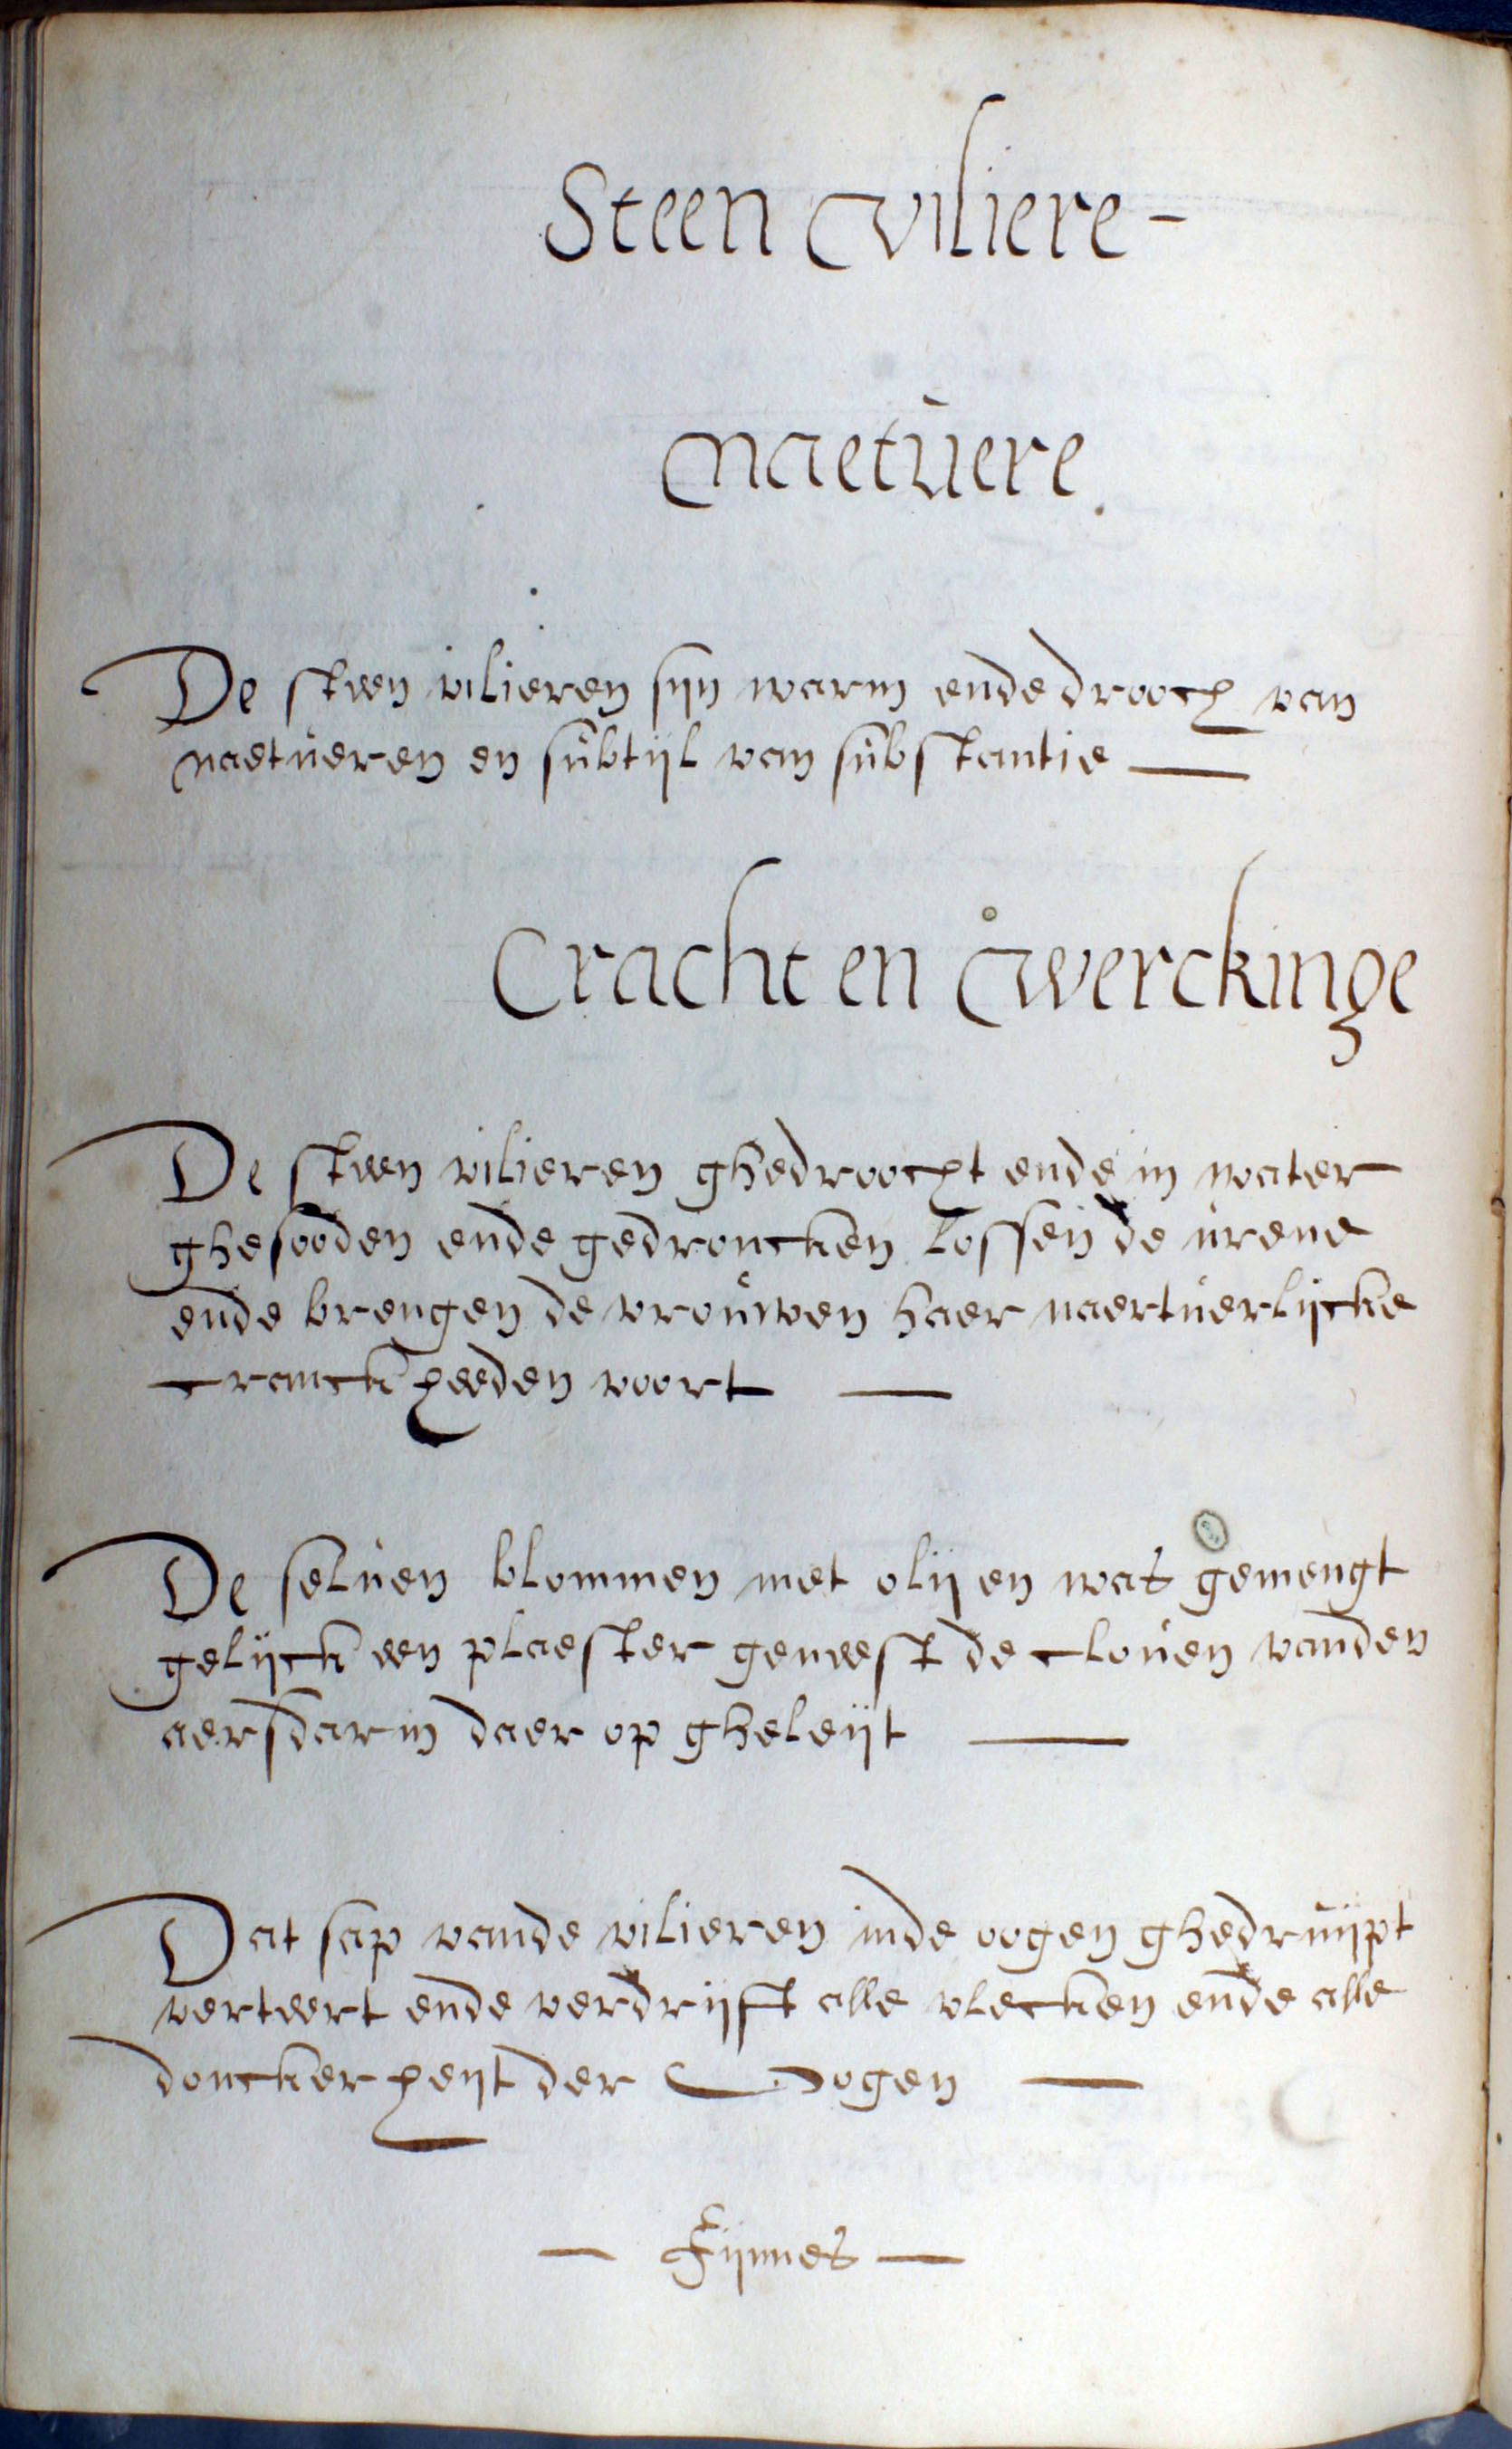 Steen viliere -
naetuere.
De steen vilieren sijn warm ende drooch van
naetueren en subtijl van substantie —
Cracht en werckinge
De steen vilieren ghedroocht ende in water
ghesooden ende gedroncken lossen de urene
ende brengen de vrouwen haer naertuerlijcke
cranckheeden voort —
De seluen blommen met olij en was gemengt
gelijck een plaester geneest de clouen vanden
aersdarm daer op gheleijt —
Dat sap vande vilieren inde oogen ghedruijpt
verteert ende verdrijft alle vlecken ende alle
donckerheijt der Oogen —
— Fijnnes —